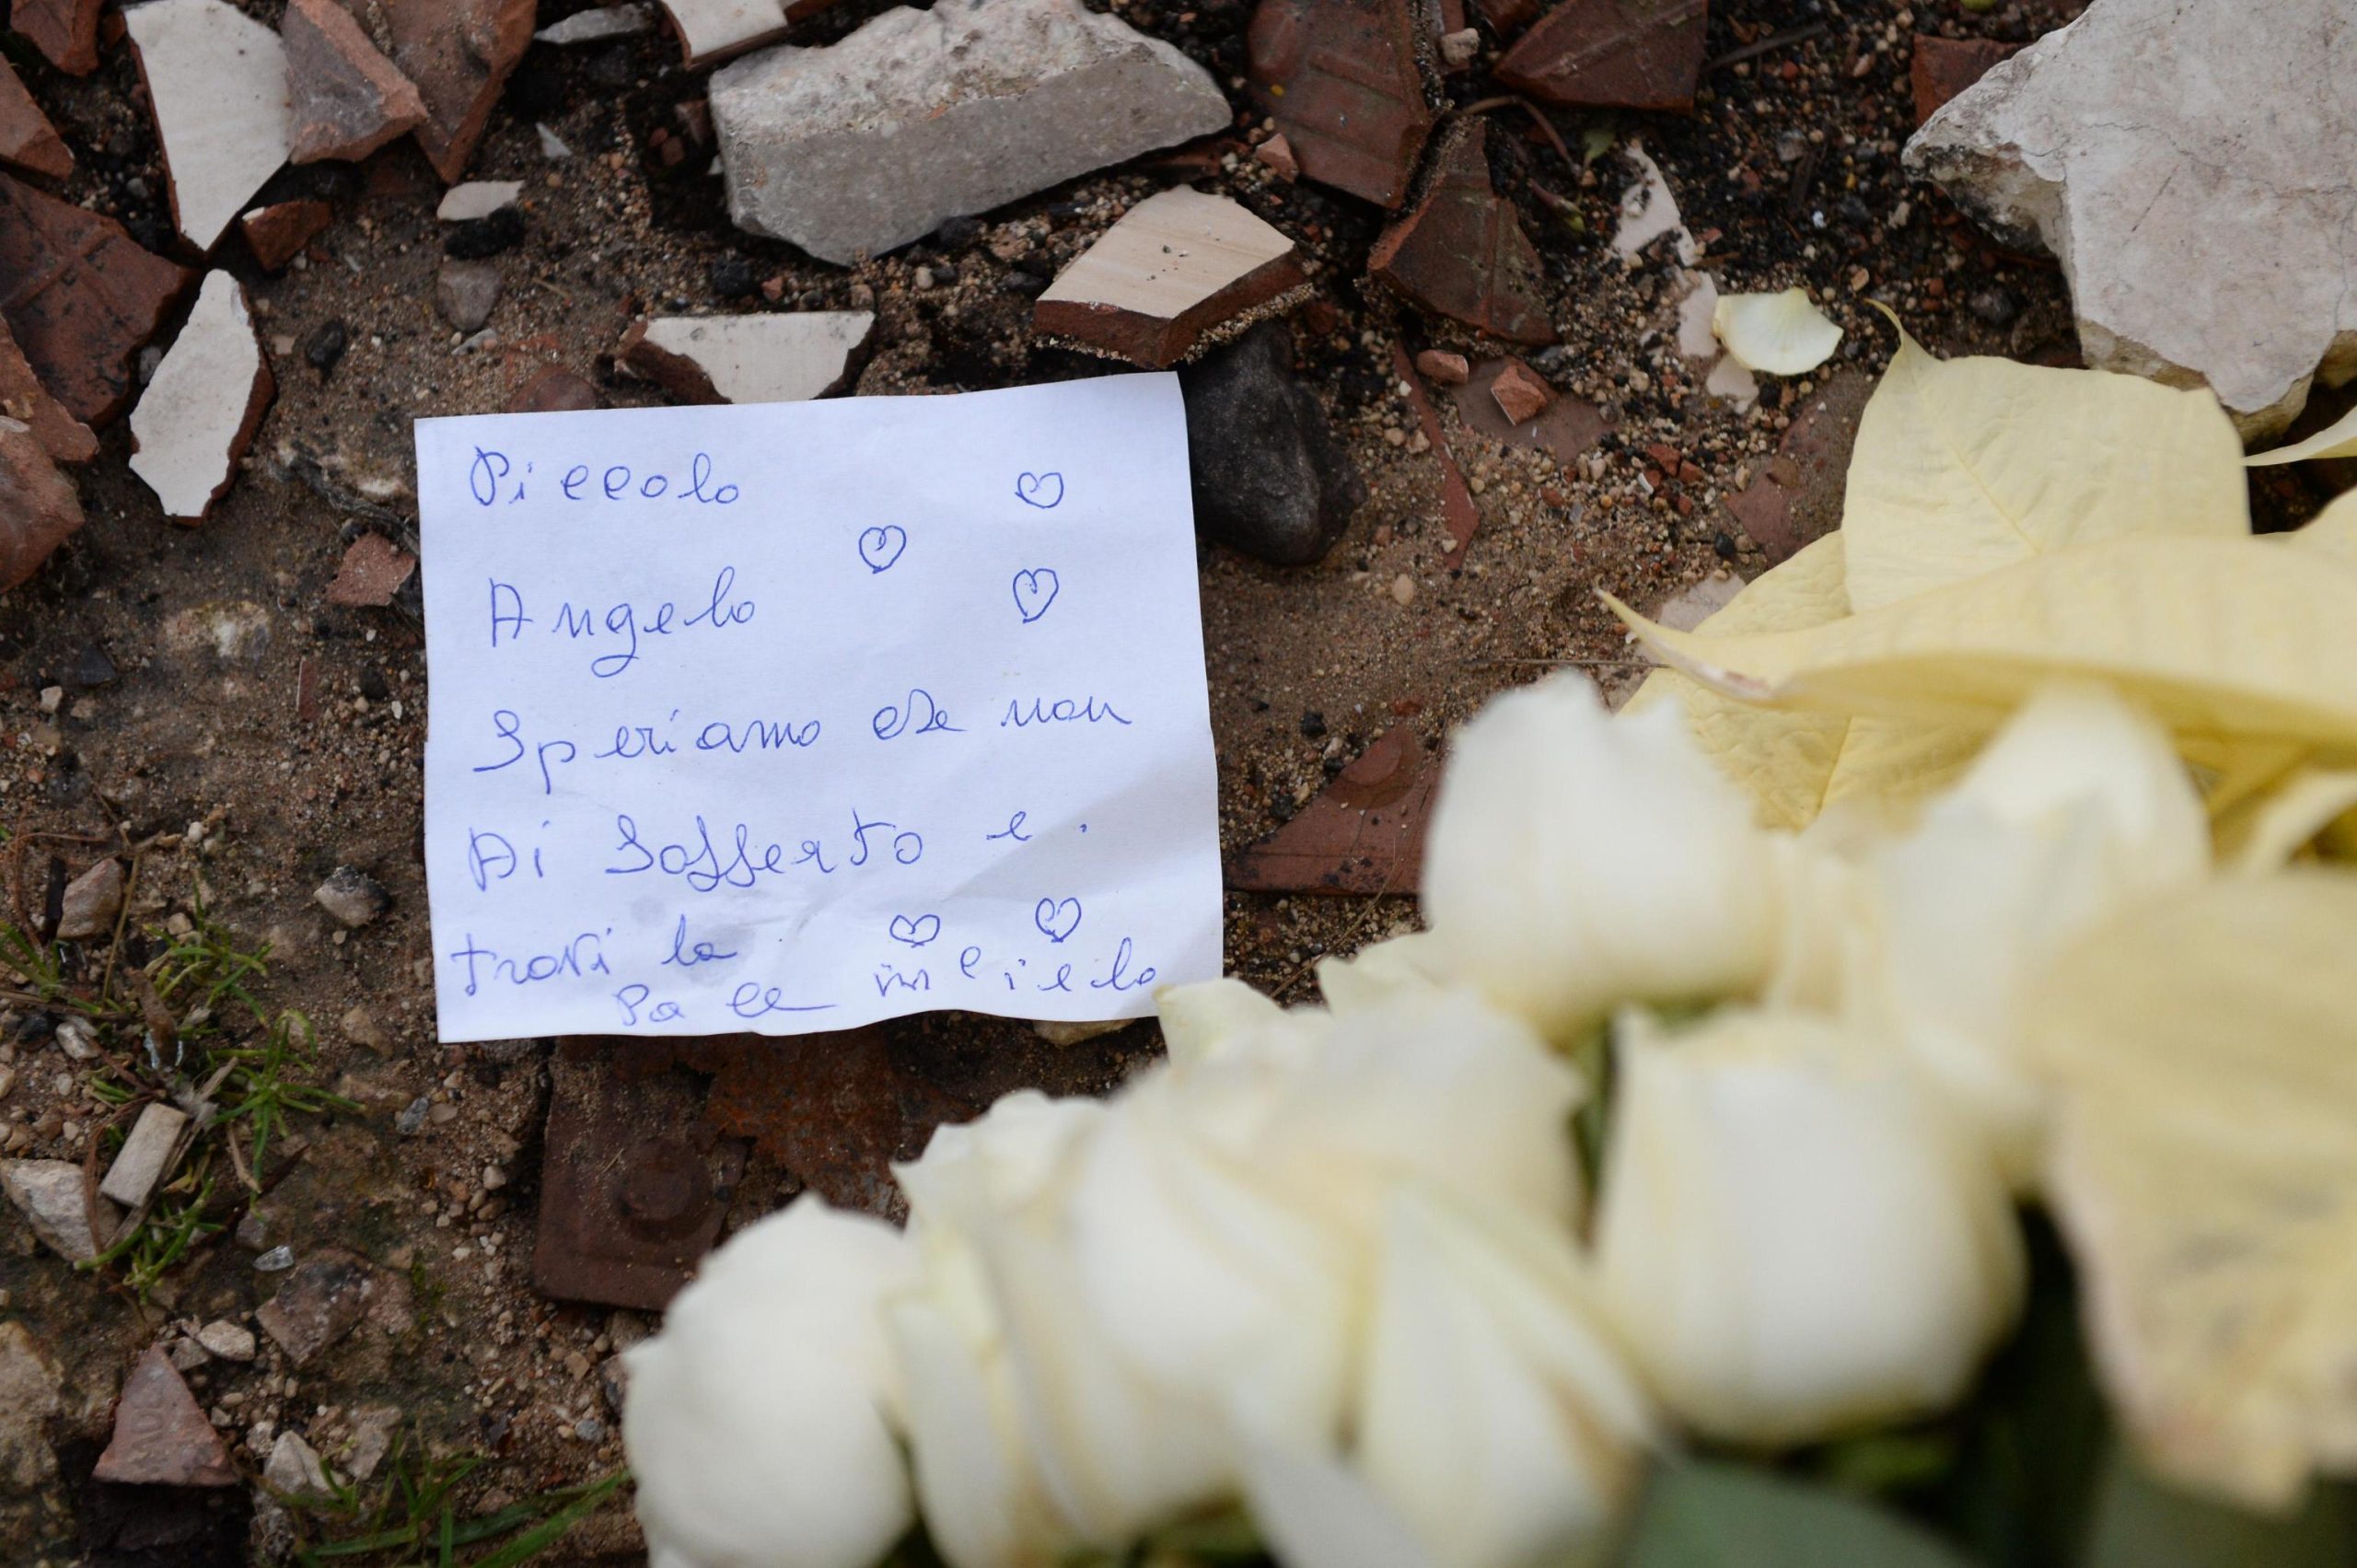 Piccolo
Angelo
Speriamo che non
Ai Sofferto e
trovi la
Pace in cielo